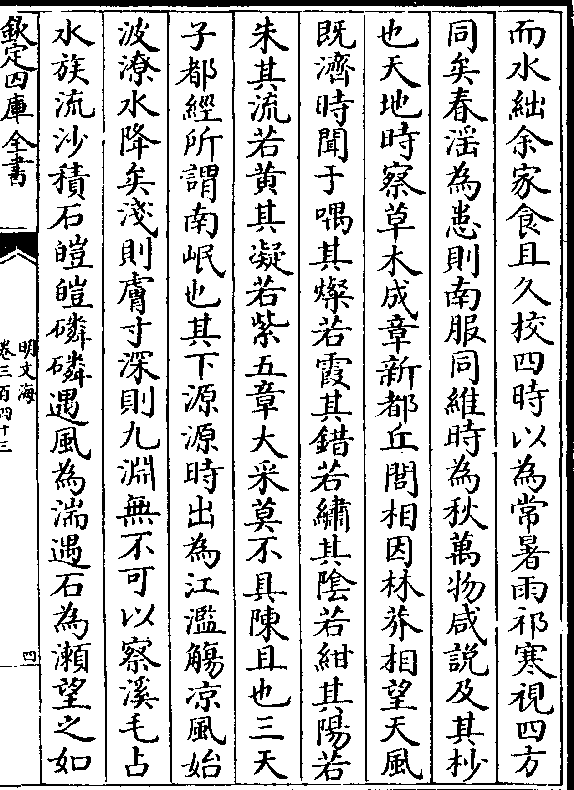 而水絀余家食且久挍四時以為常暑雨祁寒視四方
同矣春滛為恖則南服同維時為秋萬物咸説及其杪
也天地時察草木成章新都丘閭相因林莽相望天風
既濟時聞于喁其燦若霞其錯若繡其陰若紺其陽若
朱其流若黄其凝若紫五章大采莫不具陳且也三天
子都經所謂南岷也其下源源時出為江濫觴凉風始
波潦水降矣淺則膚寸深則九淵無不可以察溪毛占
水族流沙積石皚皚磷磷遇風為湍遇石為瀬望之如
欽定四庫全書
明文海
卷三百四十三
四